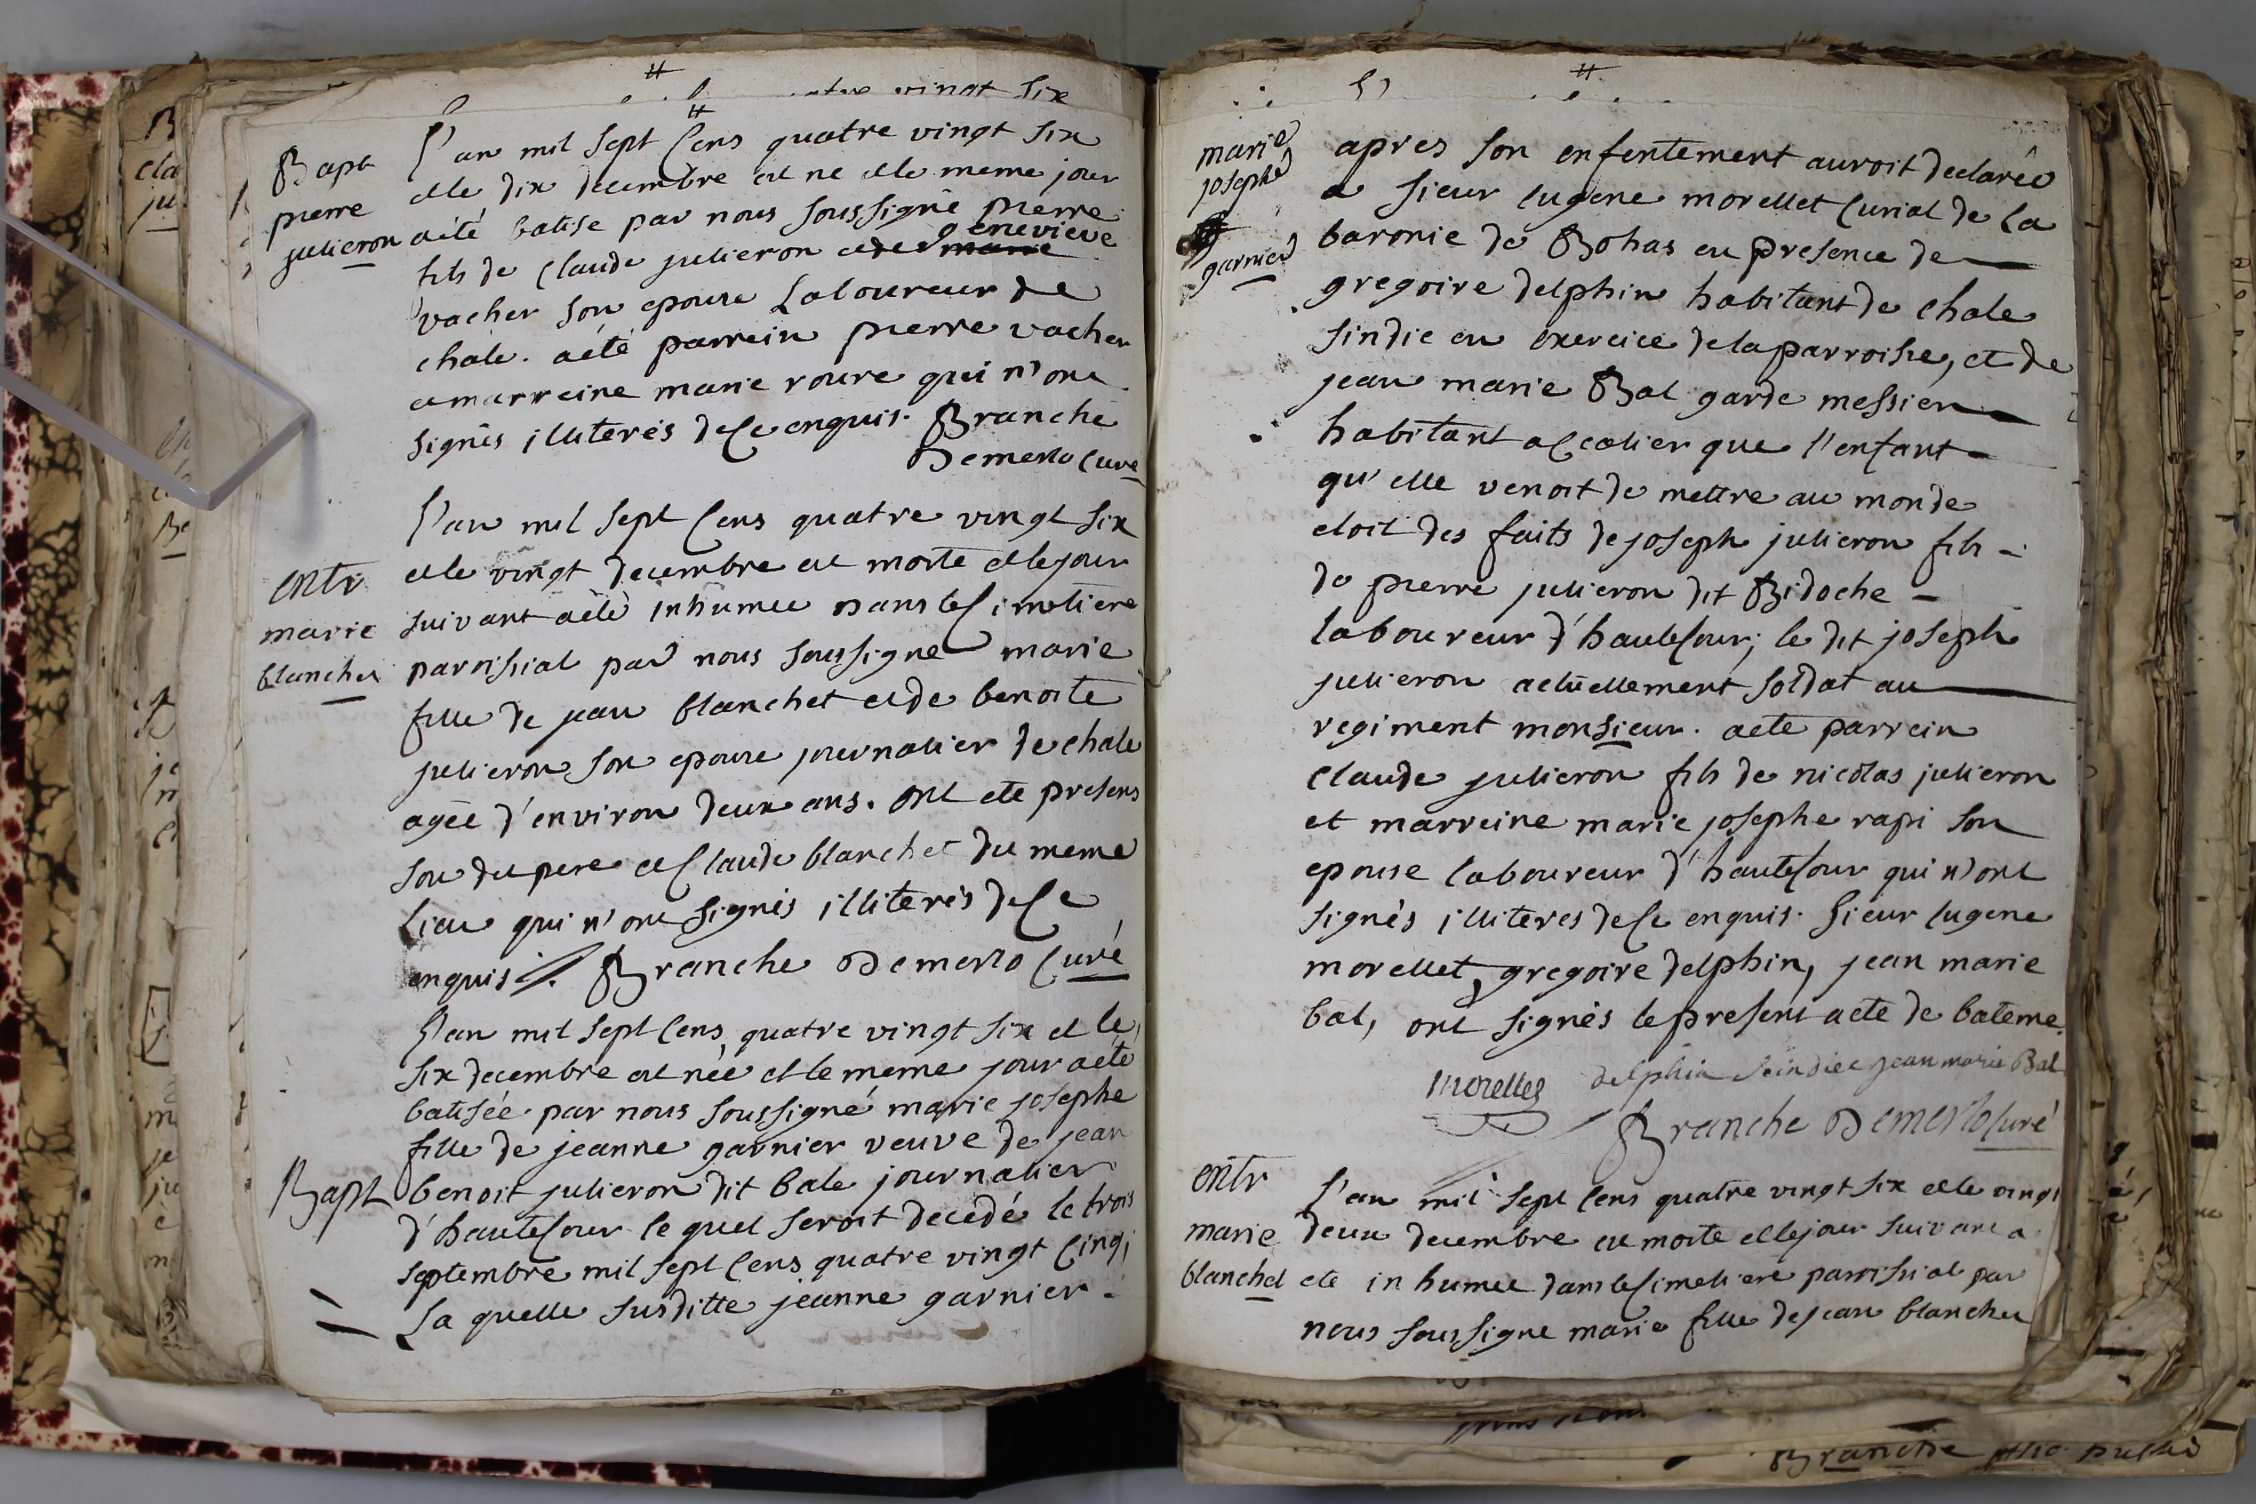 Bapt
pierre
julieron
L'an mil sept Cens quatre vingt six
et le dix decembre est ne et le meme jour
a été batisé par nous soussigné pierre
genevieve
fils de Claude julieron et de marie
vacher son epouse Laboureur de
chále. a été parrein pierre vacher
et marreine marie roure qui n'ont
signés illiterés de Ce enquis. Branche
Demerlo Curé
entr
marie
blanchet
L'an mil sept Cens quatre vingt six
et le vingt decembre est morte et le jour
suivant a été inhumee dans le Cimetiere
paroissial par nous soussigné marie
fille de jean blanchet et de benoite
julieron son epouse journalier de chale
agée d'environ deux ans. ont ete presens
son dit pere et Claude blanchet du meme
Lieu qui n'ont signés illiterés de Ce
enquis ./. Branche Demerlo Curé
Bapt
L'an mil sept Cens quatre vingt six et le
six decembre est née et le meme jour a été
batisée par nous soussigné marie josephe
fille de jeanne garnier veuve de jean
benoit julieron dit bale journalier
d'hauteCour le quel seroit decédé le trois
septembre mil sept Cens quatre vingt Cinq;
La quelle susditte jeanne garnier
marie
josephe
garnier
apres son enfentement auroit declarée
a sieur Eugene morellet Curial de La
baronie de Bohas en presence de
gregoire delphin habitant de chale
sindic en exercice de la parroisse, et de
jean marie Bal garde messier
habitant a Ccelier que l'enfant
qu'elle venoit de mettre au monde
etoit des faits de joseph julieron fils
de pierre julieron dit Bidoche
laboureur d'hauteCour; le dit joseph
julieron actuellement soldat au
regiment monsieur. a ete parrein
Claude julieron fils de nicolas julieron
et marreine marie josephe rapi son
epouse laboureur d'hauteCour qui n'ont
signés illiteres de Ce enquis. Sieur Eugene
morellet, gregoire delphin, jean marie
bal, ont signés le present acte de bateme.
Morellet delphin seindiee jean marie Bal
Branche Demerlo Curé
entr
marie
blanchet
L'an mil sept Cens quatre vingt six et le vingt
deux decembre est morte et le jour suivant a
ete inhumee dans le Cimetiere paroissial par
nous soussigné marie fille de jean blanchet